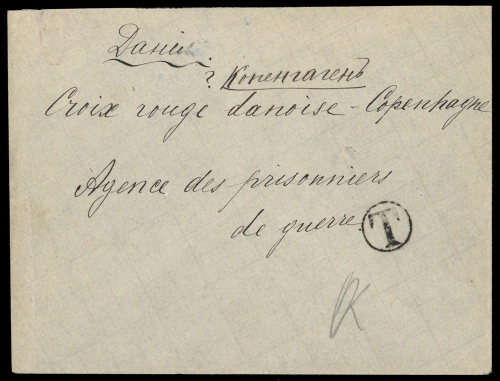 Данiя
г. Копенгагенъ
Croix rouge danoise - Copenhague
Agence des prisonniers
de guerre
T